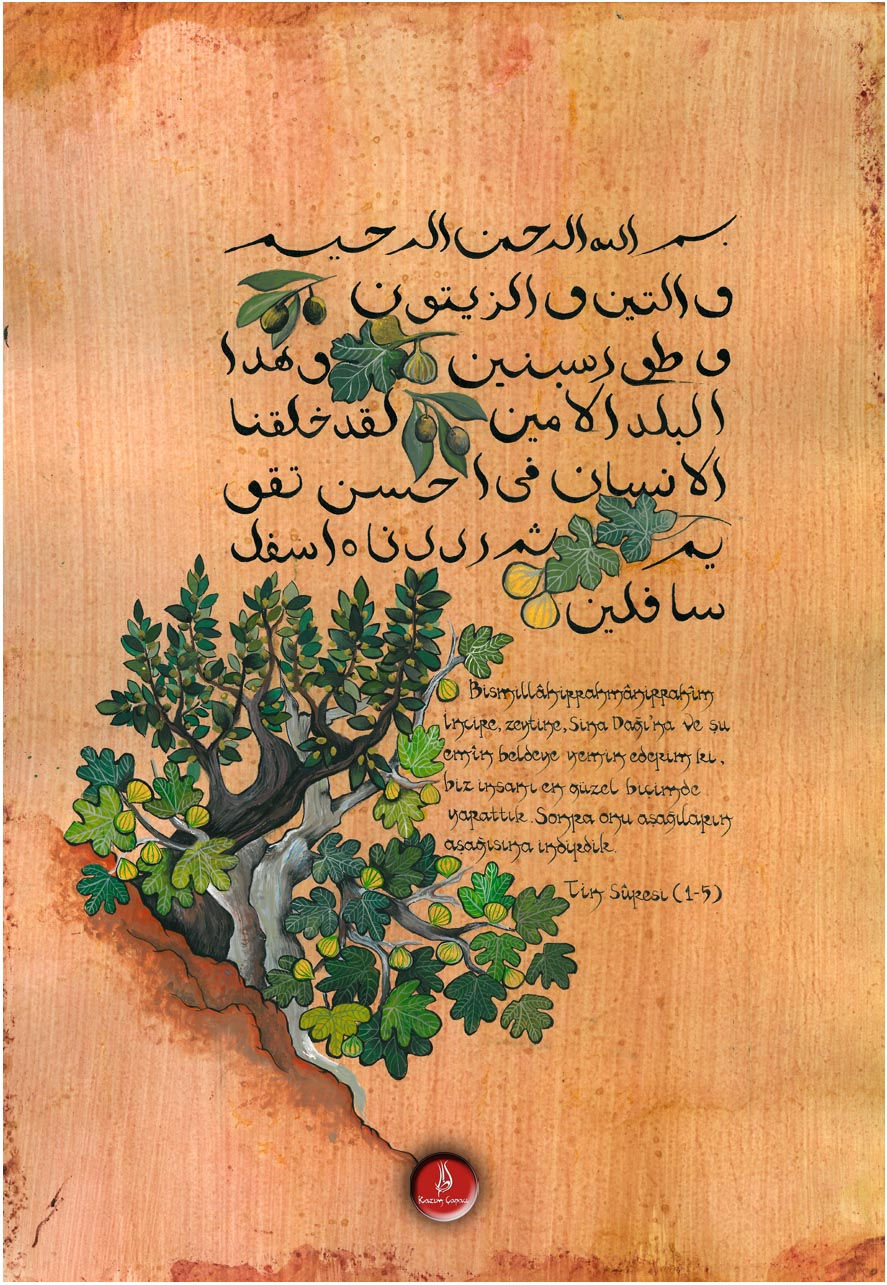 بسم الله الرحمن الرحيم
و التين و الزيتون
و طور سنين و هدا
البلد الامين لقد خلقنا
الانسان في احسن تقو
يم ثم رددناه اسفل
سافلين
Bismillâhirrahmânirrahîm
İncire, zeytine, Sina Dağı'na ve şu
emin beldeye yemin ederim ki,
biz insanı en güzel biçimde
yarattık. Sonra onu aşağıların
aşağısına indirdik.
Tin Sûresi (1-5)